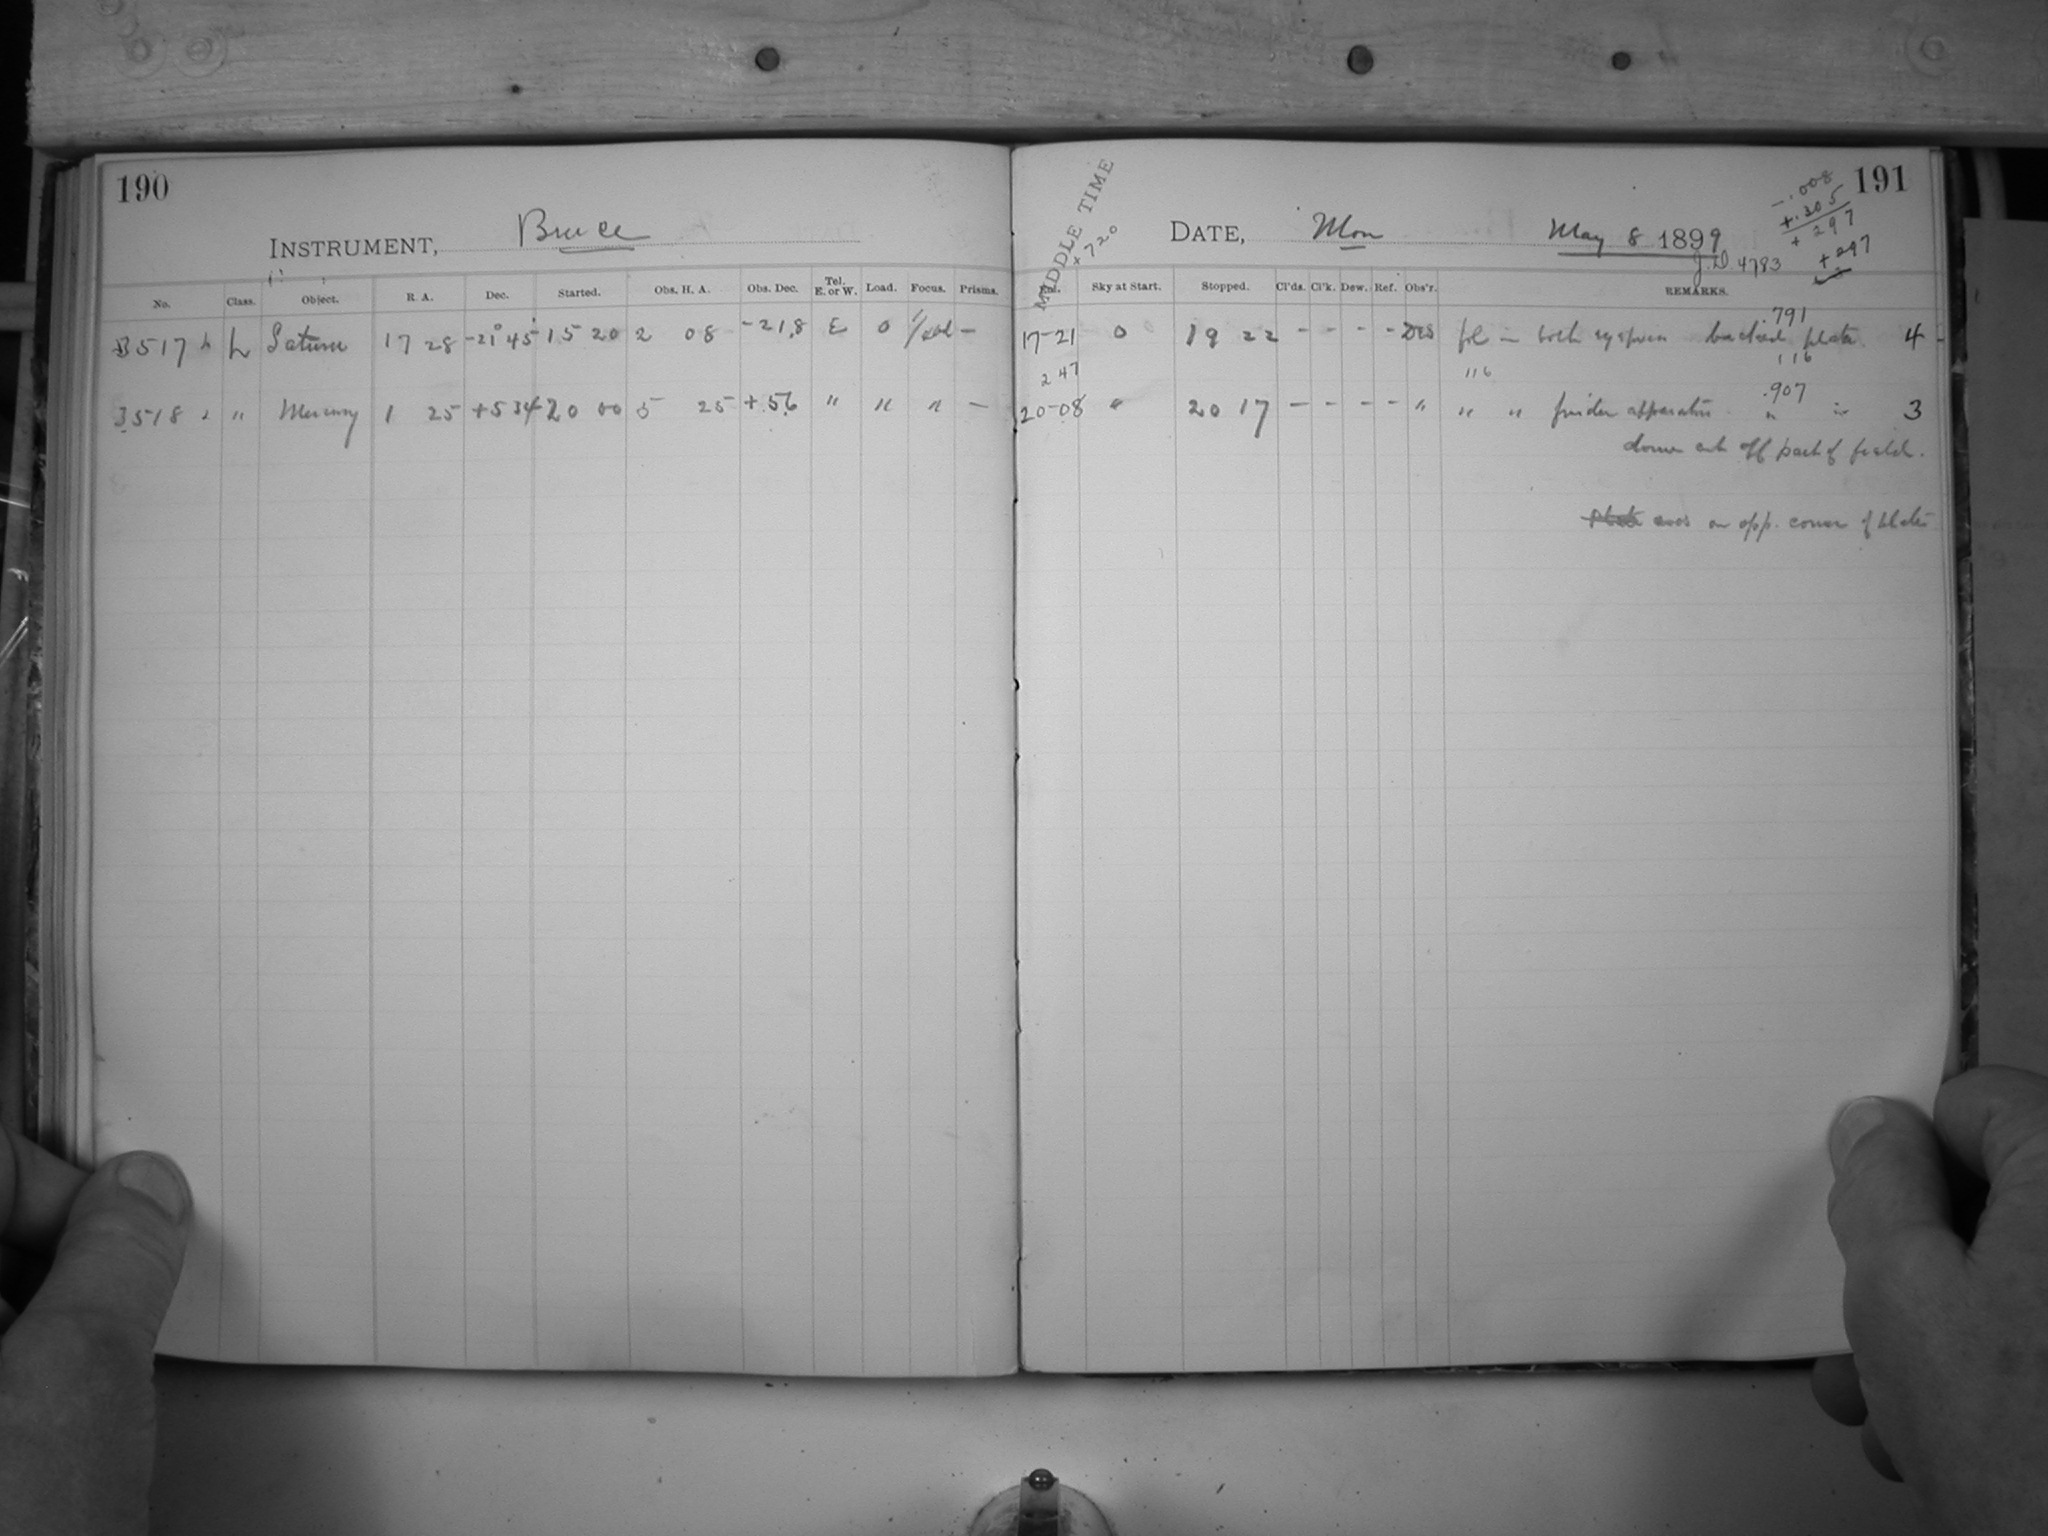 190
INSTRUMENT, Bruce
No. Class. Object. R. A. Dec. Started. Obs. H. A. Obs. Dec. Tel. E. or W. Load. Focus. Prisms.
B 517 L Saturn 17 28 -21° 45' 15 20 2 08 -21.8 E 0 -
3518 " Mercury 1 25 +5 34 20 00 5 25 +5.6 " " " -
191
MIDDLE TIME
+720
DATE, Mon May 8 1899
J.D. 4783
-.008
+.305
+297
+.297
Sky at Start. Stopped. Cl'ds. Cl'k. Dew. Ref. Obs'r. REMARKS.
.791
17-21 0 19 22 - - - - plate 4
247
116
116
.907
20-08 " 20 17 - - - - " " " finder apparatus " " 3
dome cut off part of field.
on opp. corner of plate